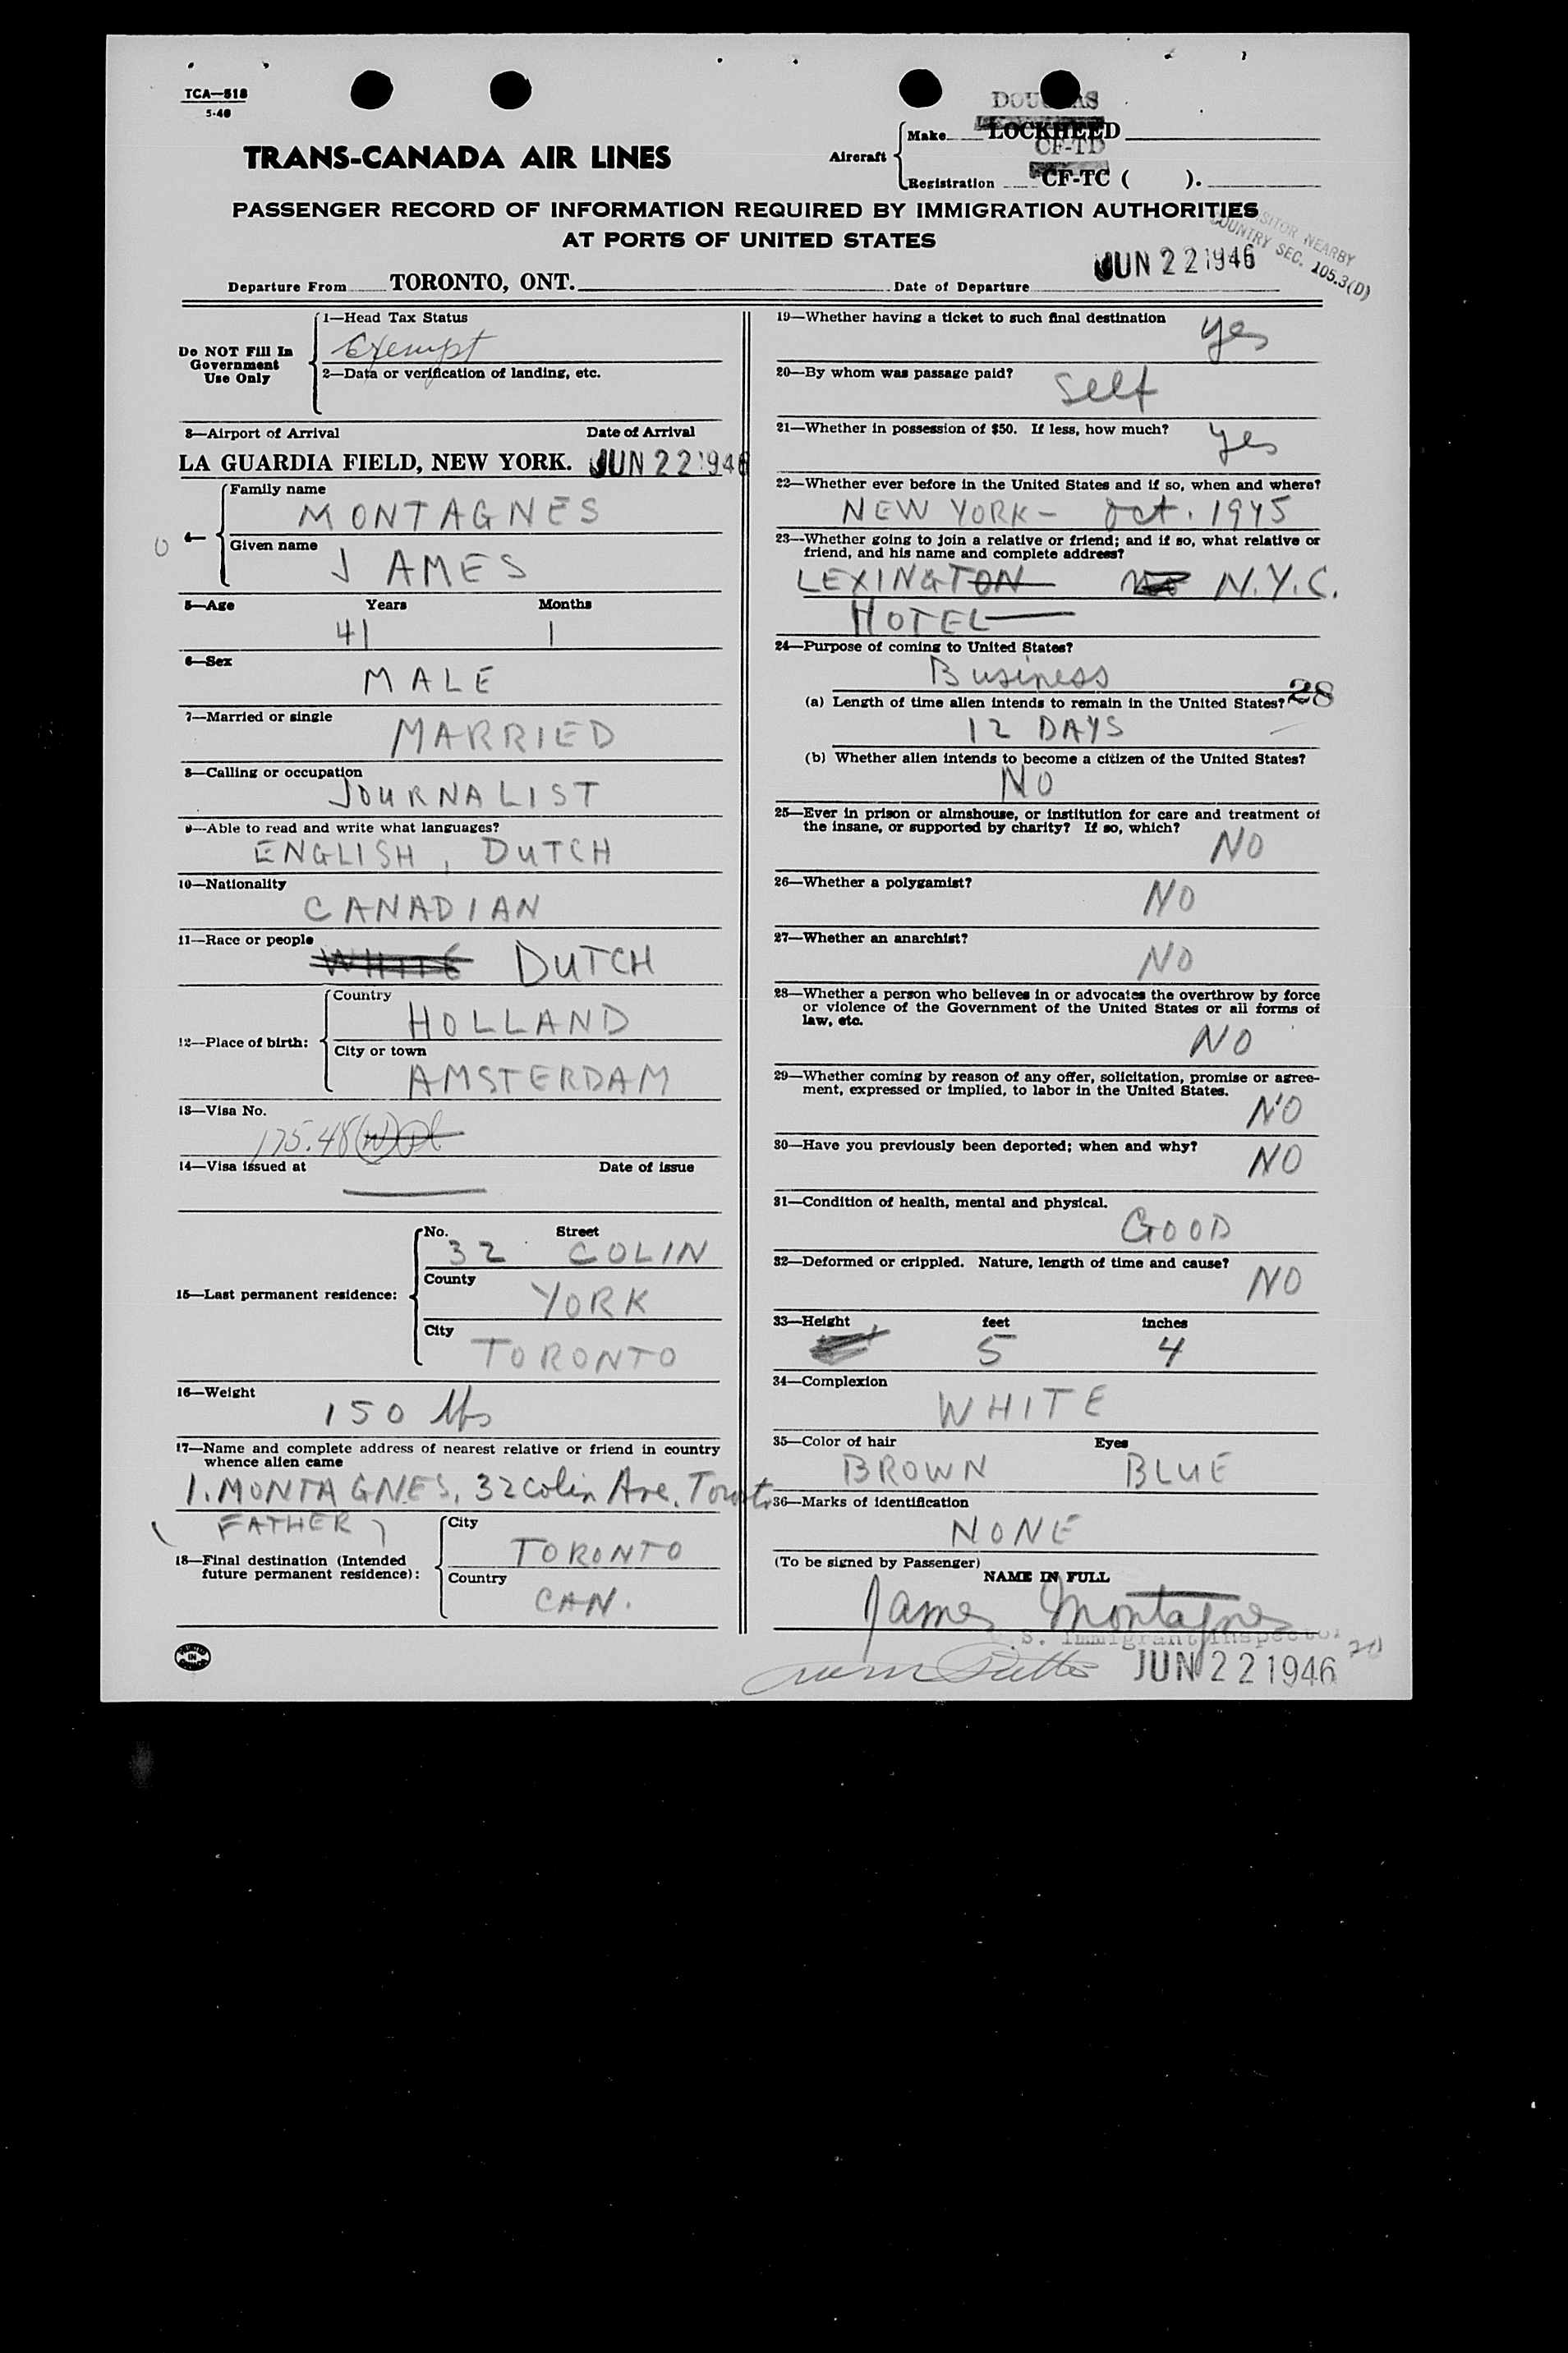 TCA—518
5-46
DOUGLAS
Make LOCKHEED
CF-TD
Aircraft
Registration CF-TC ( ).
TRANS-CANADA AIR LINES
PASSENGER RECORD OF INFORMATION REQUIRED BY IMMIGRATION AUTHORITIES
AT PORTS OF UNITED STATES
VISITOR NEARBY
COUNTRY SEC. 105.3(D)
Departure From TORONTO, ONT. Date of Departure JUN 22 1946
Do NOT Fill In
Government
Use Only
1—Head Tax Status
Exempt
2—Data or verification of landing, etc.
3—Airport of Arrival Date of Arrival
LA GUARDIA FIELD, NEW YORK. JUN 22 1946
4—
Family name
MONTAGNES
Given name
JAMES
5—Age Years Months
41 1
6—Sex
MALE
7—Married or single
MARRIED
8—Calling or occupation
JOURNALIST
9—Able to read and write what languages?
ENGLISH, DUTCH
10—Nationality
CANADIAN
11—Race or people
WHITE DUTCH
12—Place of birth:
Country
HOLLAND
City or town
AMSTERDAM
13—Visa No.
175.48
14—Visa issued at Date of issue
15—Last permanent residence:
No. Street
32 COLIN
County
YORK
City
TORONTO
16—Weight
150 lbs
17—Name and complete address of nearest relative or friend in country
whence alien came
I. MONTAGNES, 32 Colin Ave. Toronto
(FATHER)
18—Final destination (Intended
future permanent residence):
City
TORONTO
Country
CAN.
19—Whether having a ticket to such final destination
yes
20—By whom was passage paid?
Self
21—Whether in possession of $50. If less, how much?
yes
22—Whether ever before in the United States and if so, when and where?
NEW YORK - Oct. 1945
23—Whether going to join a relative or friend; and if so, what relative or
friend, and his name and complete address?
LEXINGTON N.Y.C.
HOTEL
24—Purpose of coming to United States?
Business
28
(a) Length of time alien intends to remain in the United States?
12 DAYS
(b) Whether alien intends to become a citizen of the United States?
NO
25—Ever in prison or almshouse, or institution for care and treatment of
the insane, or supported by charity? If so, which?
NO
26—Whether a polygamist?
NO
27—Whether an anarchist?
NO
28—Whether a person who believes in or advocates the overthrow by force
or violence of the Government of the United States or all forms of
law, etc.
NO
29—Whether coming by reason of any offer, solicitation, promise or agree-
ment, expressed or implied, to labor in the United States.
NO
30—Have you previously been deported; when and why?
NO
31—Condition of health, mental and physical.
GOOD
32—Deformed or crippled. Nature, length of time and cause?
NO
33—Height feet inches
5 4
34—Complexion
WHITE
35—Color of hair Eyes
BROWN BLUE
36—Marks of identification
NONE
(To be signed by Passenger)
NAME IN FULL
James Montagnes
S. Immigrant Inspector
JUN 22 1946